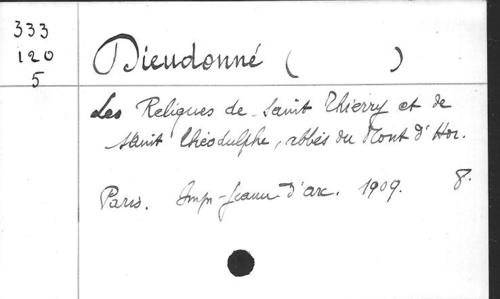 333
120
5
Dieudonné ( )
Les Reliques de Saint Thierry et de
Saint Théodulphe, abbés du Mont d'Hor.
Paris. Imp. Jeanne d'Arc. 1909. 8.